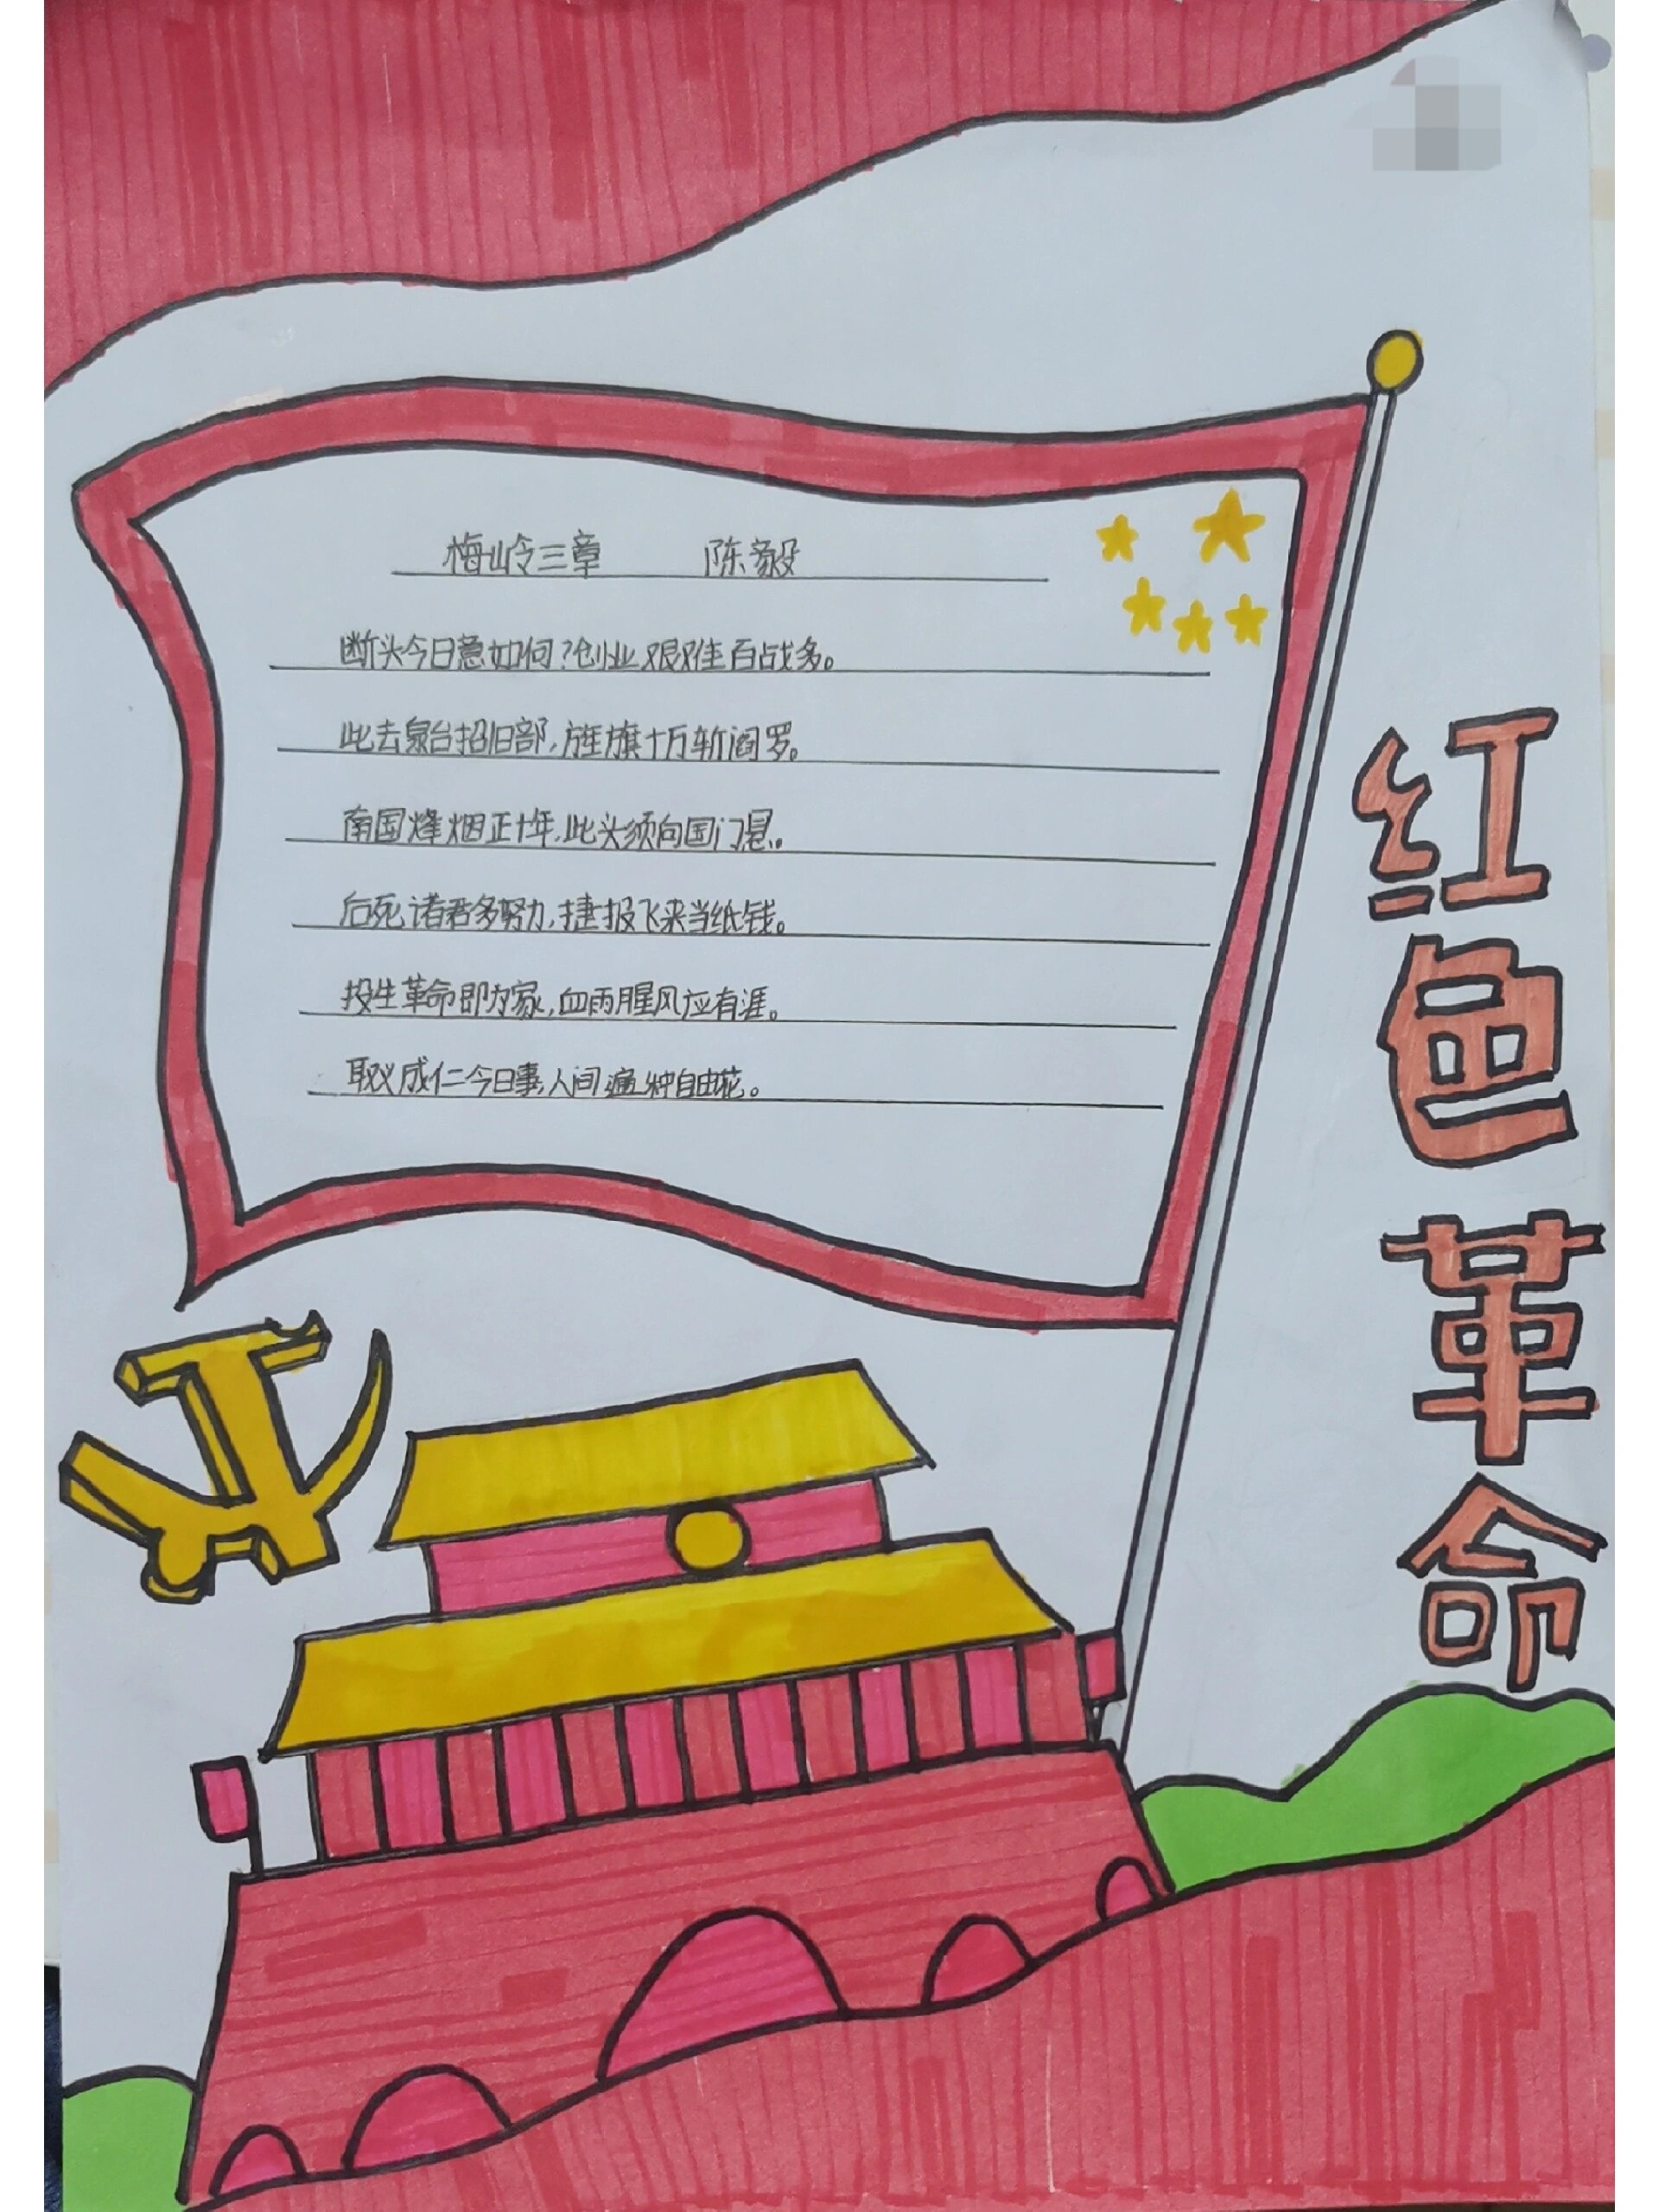 梅岭三章 陈毅
断头今日意如何?创业艰难百战多。
此去泉台招旧部,旌旗十万斩阎罗。
南国烽烟正十年,此头须向国门悬。
后死诸君多努力,捷报飞来当纸钱。
投生革命即为家,血雨腥风应有涯。
取义成仁今日事,人间遍种自由花。
红色革命